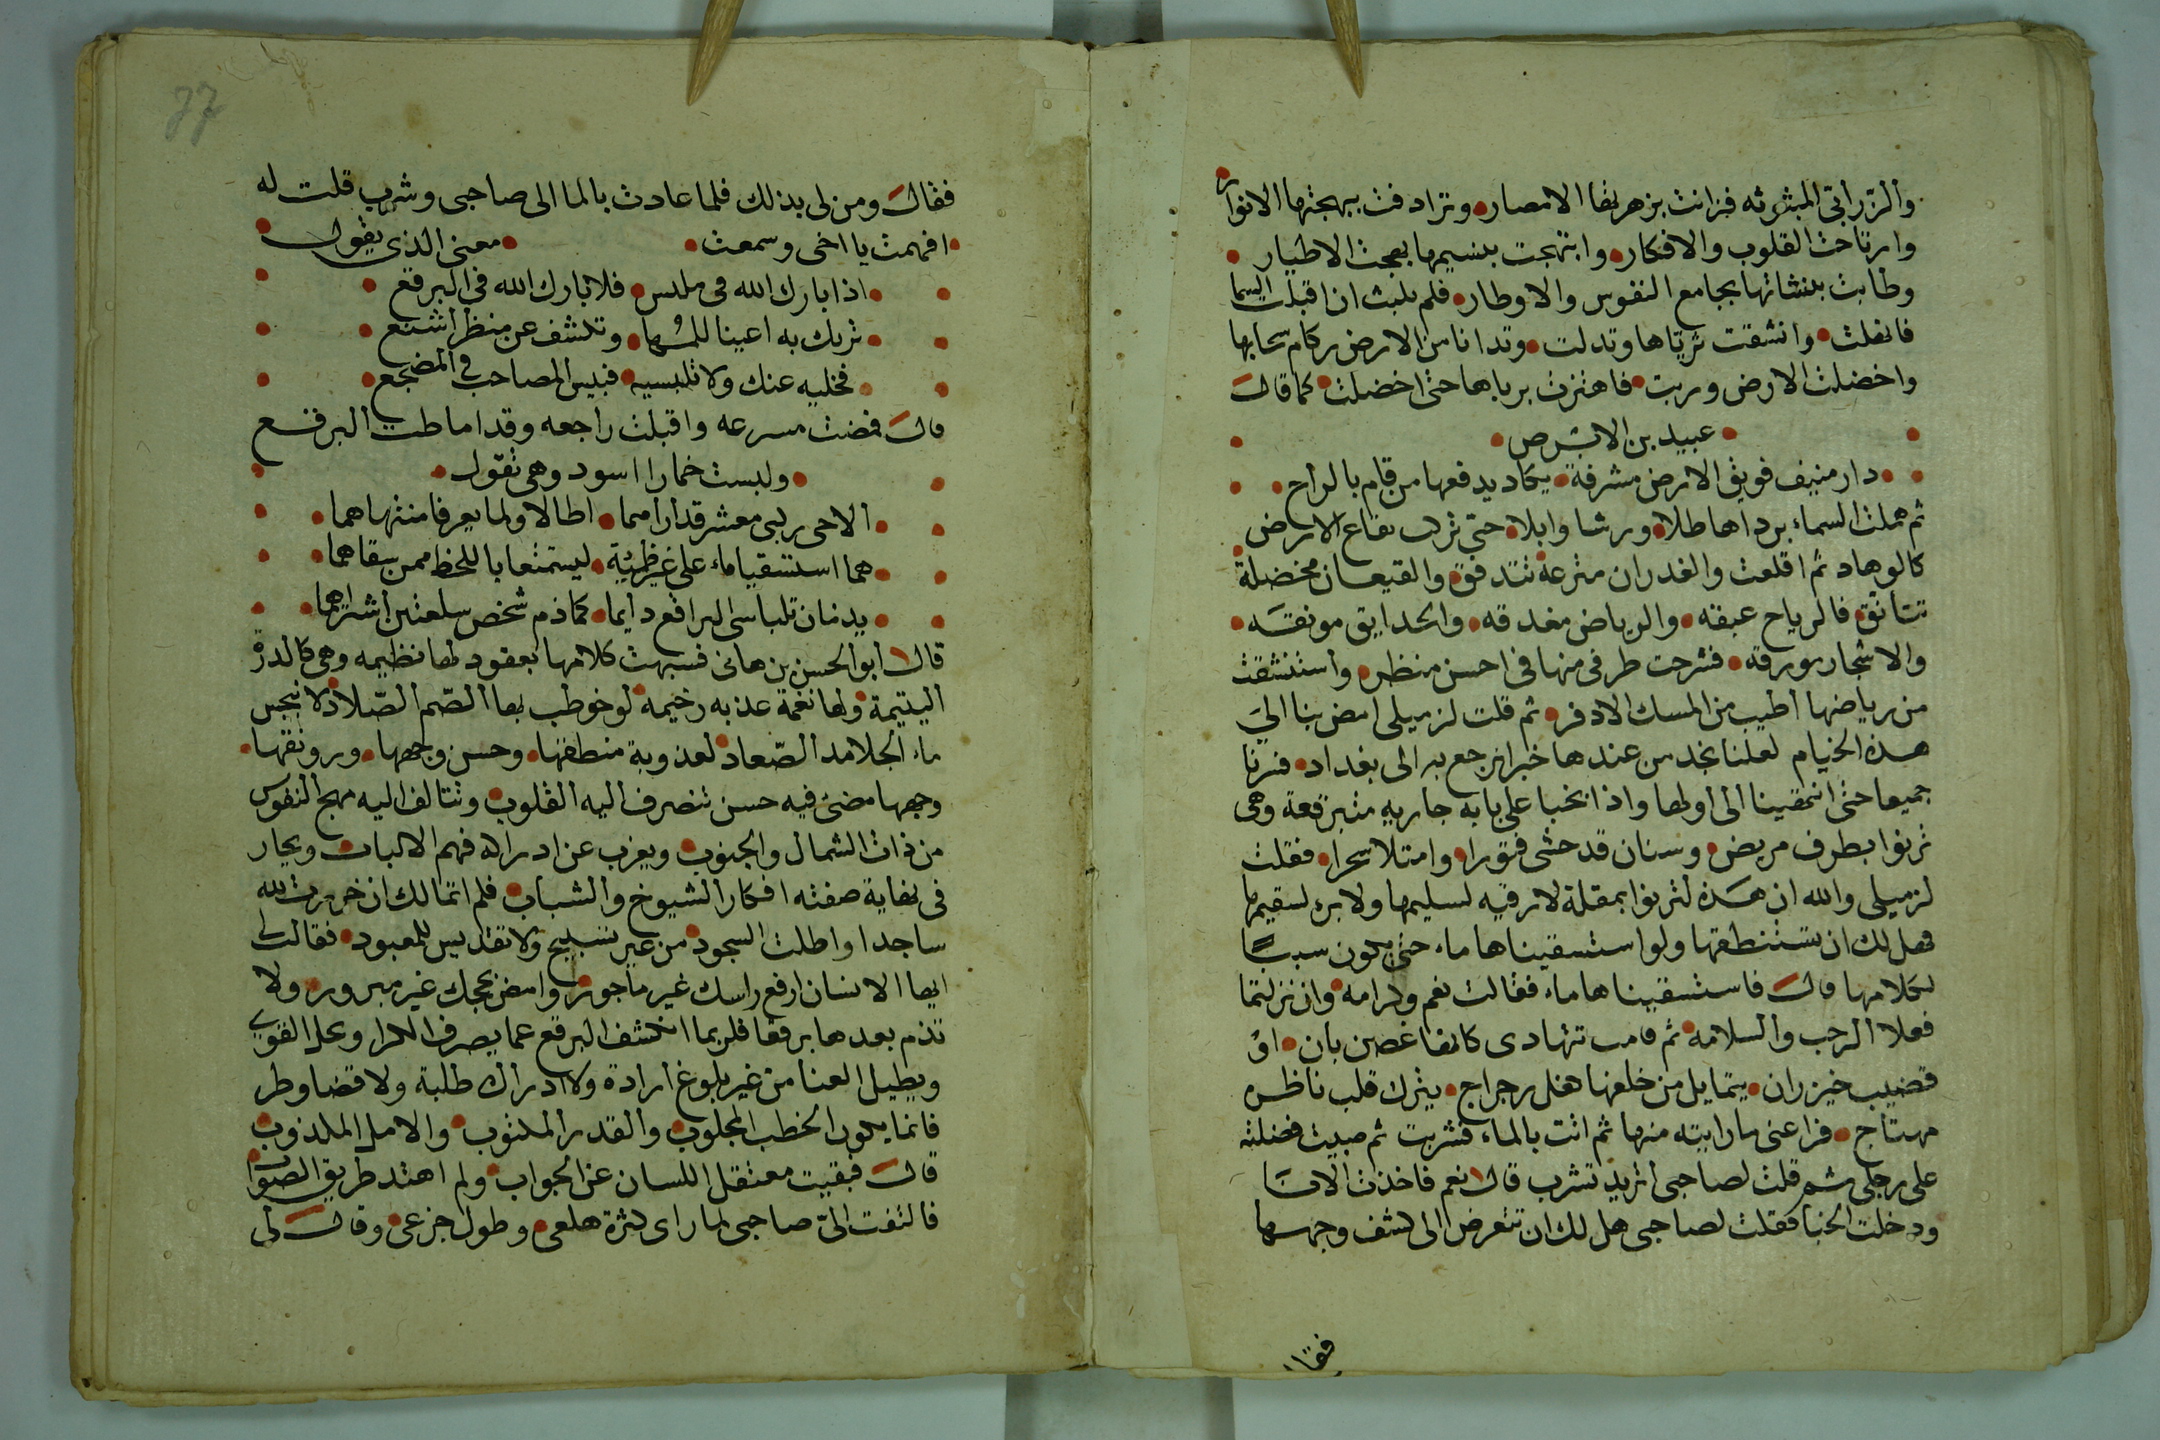 والزرابي المبثوثه فزانت بزهرتها الامصار وترادفت ببهجتها الانوار
وارتاحت القلوب والافكار وابتهجت بنسيمها بعجت الاطيار
وطابت بنشاتها بجامع النفوس والاوطار فلم نلبث ان اقبلت السما
فانهلت وانشقت ثرياها وتدلت وتدانا من الارض ركام سحابها
واخضلت الارض وربت فاهتزت برباها حتى اخضلت كما قال
عبيد بن الابرص
دار منيف فويق الارض مشرفة يكاد يدفعها من قام بالراح
ثم هملت السماء برداها طلا ورشا وابلا حتى ترك بقاع الارض
كالوهاد ثم اقلعت والغدران مترعة تتدفق والقيعان مخضلة
تتانق فالرياح عبقه والرياض مغدقه والحدايق مونقه
والاشجار مورقه فسرحت طرفي منها في احسن منظر واستنشقت
من رياضها اطيب من المسك الادفر ثم قلت لزميلي امض بنا الي
هذه الخيام لعلنا نجد من عندها خبرا نرجع به الى بغداد فنزنا
جميعا حتى انتهينا الى اولها واذا بخبا على بابه جاريه متبرقعة وهي
ترنوا بطرف مريض وسنان قد حشى فتورا وامتلا سحرا فقلت
لزميلي والله ان هذه لترنوا بمقلة لا رقيه لسليمها ولا برء لسقيمها
فهل لك ان تستنطقها ولو استسقيناها ماء حتى يكون سببا
لكلامها قال فاستسقيناها ماء فقالت نعم وكرامه وان نزلتما
فعلا الرحب والسلامه ثم قامت تتهادى كانها غصن بان او
قضيب خيزران يتمايل من خلفها هنل رجراج يترك قلب ناظره
مهتاج فراعني ما رايته منها ثم اتت بالماء فشربت ثم صبيت فضلته
على رجلي ثم قلت لصاحبي اتريد تشرب قال نعم فاخذت الانا
ودخلت الخبا فقلت لصاحبي هل لك ان تتعرض الى كشف وجهها
فقال
77
فقال ومن لي بذلك فلما عادت بالما الى صاحبي وشرب قلت له
افهمت يا اخي وسمعت معنى الذي يقول
اذا بارك الله في ملبس فلا بارك الله في البرقع
تريك به اعينا للمها وتكشف عن منظر اشنع
فخليه عنك ولا تلبسيه فبيس المصاحب في المضجع
قال فمضت مسرعه واقبلت راجعه وقد اماطت البرقع
ولبست خمارا اسود وهي تقول
الا حى ربي معشر قد اراهما اطالا ولما يعرفا منتهاهما
هما استسقيا ماء على غير ظميّة ليستمتعا باللحظ ممن سقاهما
يذمان تلباسى البراقع دايما كما ذم شخص سلعتين اشتراهما
قال ابو الحسن بن هاني فشبهت كلامها بعقود لها نظيمه وهي كالدرة
اليتيمة ولها نغمة عذبه رخيمه لو خوطب بها الصّم الصّلاد لانبجس
ماء الجلامد الصّعاد لعذوبة منطقها وحسن وجهها ورونقها
وجهها مضئ فيه حسن تنصرف اليه القلوب وتتالف اليه مهج النفوس
من ذات الشمال والجنوب ويعزب عن ادراك فهم الالباب ويحار
في نهاية صفته افكار الشيوخ والشباب فلم اتمالك ان خررت لله
ساجدا واطلت السجود من غير تسبيح ولا تقديس للمعبود فقالت لي
ايها الانسان ارفع راسك غير ماجور وامض بحجك غير مبرور ولا
تذم بعدها برقعا فلربما انكشف البرقع عما يصرف الكرا ويحل القوى
ويطيل العنا من غير بلوغ ارادة ولا ادراك طلبة ولا قضا وطر
فانما يكون الخطب المجلوب والقدر المكتوب والامل المكذوب
قال فبقيت معتقل اللسان عن الجواب ولم اهتد طريق الصواب
فالتفت اليّ صاحبي لما راى كثرة هلعي وطول جزعي وقال لي